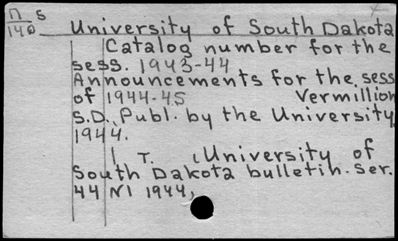 n s
140 University of South Dakota
Catalog number for the
sess. 1943-44
Announcements for the sess
of 1944-45 Vermillion
S.D., Publ. by the University
1944.
1 T. (University of
South Dakota bulletin. Ser.
44 N1 1944,